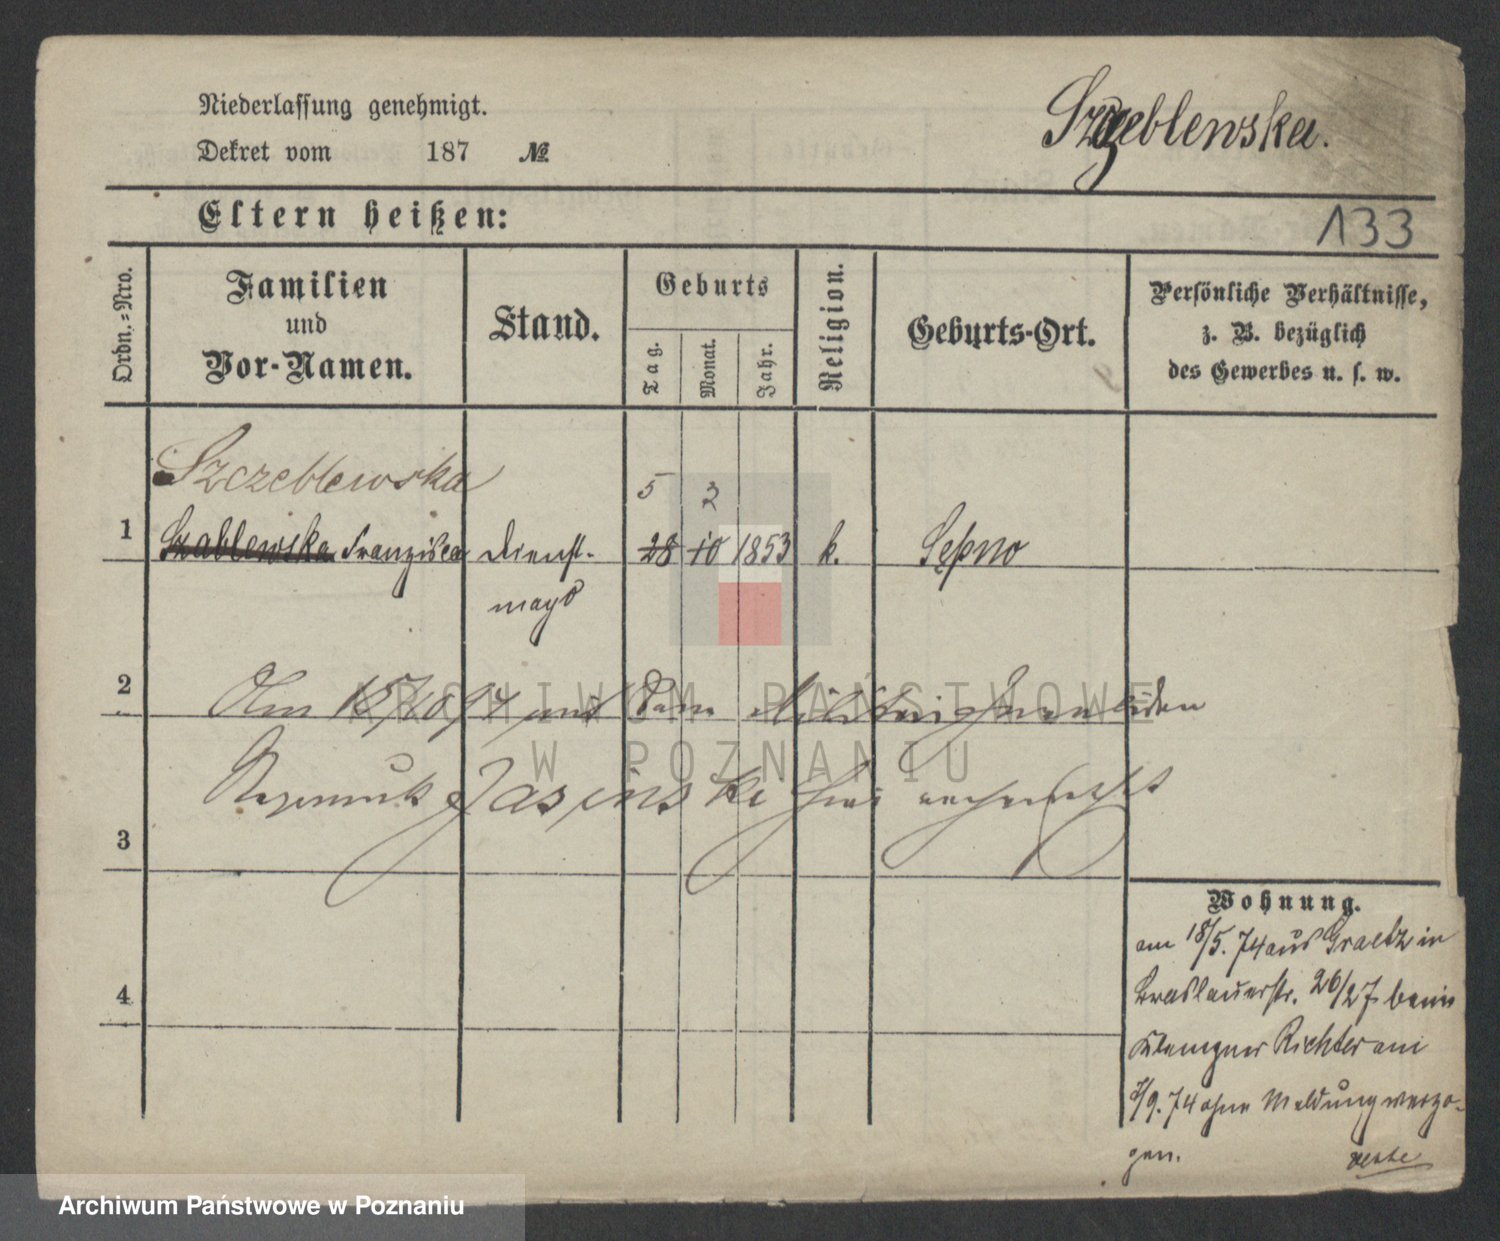 Niederlassung genehmigt.
Dekret vom 187 №
Szczeblewska.
Eltern heißen:
133
Ordn.=Nro.
Familien
und
Vor-Namen.
Stand.
Geburts
Tag.
Monat.
Jahr.
Religion.
Geburts-Ort.
Persönliche Verhältnisse,
z. B. bezüglich
des Gewerbes u. s. w.
Szczeblewska
5 2
1 Szablewska Franziska Dienst- 28 10 1853 k. Sępno
magd
2 Am mit dem Militairinvaliden
ARCHIWUM PAŃSTWOWE
W POZNANIU
Jasinski
3
Wohnung.
am 18/5. 74 aus Graetz in
4 Breslauerstr. 26/27 beim
Klempner Richter am
/9. 74 ohne Meldung verzo-
gen.
Archiwum Państwowe w Poznaniu